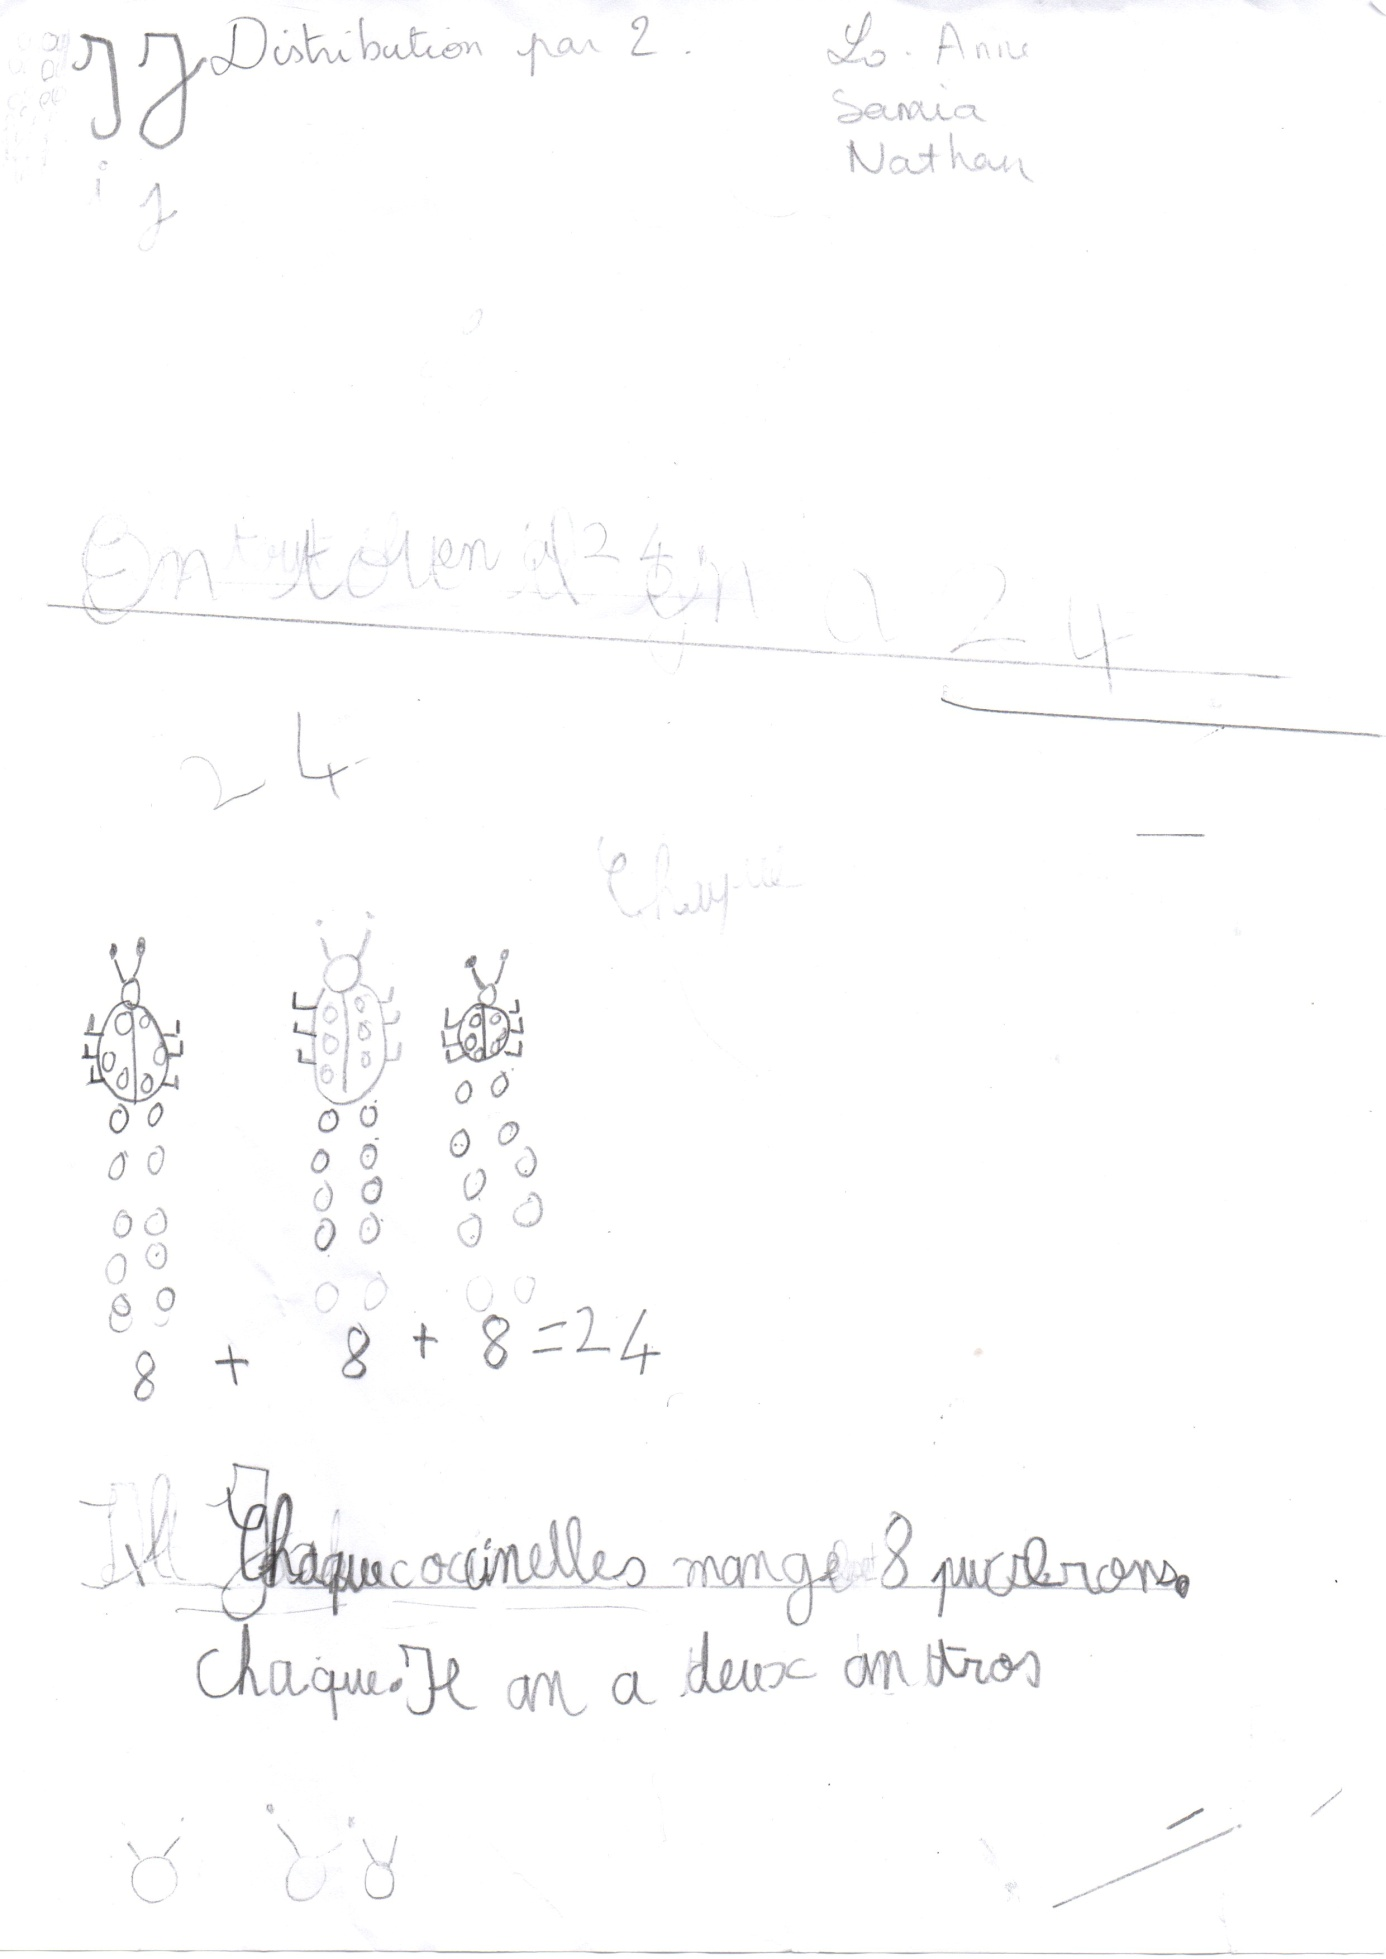 Distribution par 2.
Lo-Anne
Samia
Nathan
i j
24
Chaque
8 + 8 + 8 = 24
Chaque coccinelles mange 8 pucerons.
Chaque. Il an a deux an tros